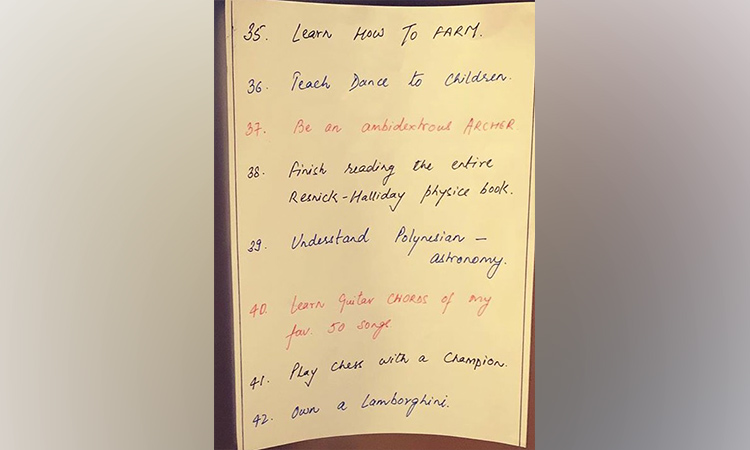 35. Learn HOW TO FARM.
36. Teach Dance to children.
37. Be an ambidextrous ARCHER
38. Finish reading the entire
Resnick-Halliday physics book.
39. Understand Polynesian -
astronomy.
40. Learn Guitar CHORDS of my
fav. 50 songs
41. Play Chess with a Champion.
42. Own a Lamborghini.